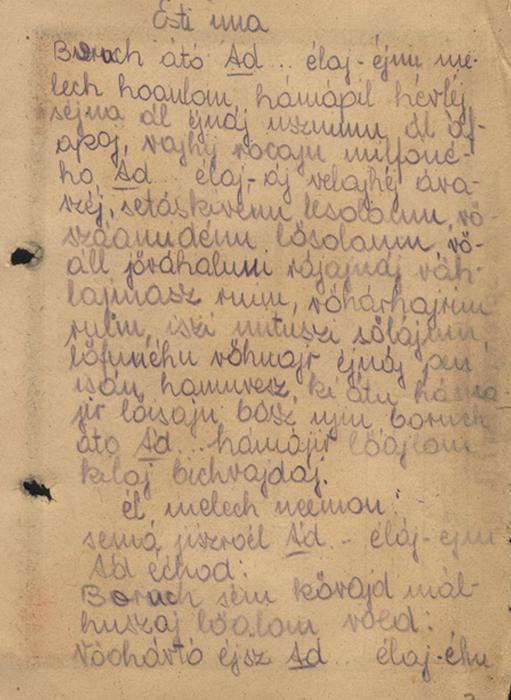 Esti ima
Boruch átó Ad... élaj-éjnu me-
lech hoaulom, hámápil hevléj
séjna ál éjnáj usznumu ál áf-
apaj, vajhéj rocajn milfoné-
ho Ad... élaj-áj velajhéj áva-
száj, setáskivénu lesolaum, vö-
száamidénu lösolaum, vö-
áll jöváhaluni rájajnáj váh-
lajmasz roim, vöhárhajrim
roim, iszi mituszi sölájmu,
löfunéhu vöhuajr éjnáj pen
isán, hamuvesz, ki átu hámá-
jir löisajn bász ujin boruch
áto Ad... hámájir löajlom
kiloj bichvajdaj.
él melech neemon:
semá jiszroél Ad... élaj-éjnu
Ad echod:
Boruch sém kövajd mál-
huszaj löalom voed:
Vöohávtó éjsz Ad... élaj-éhu